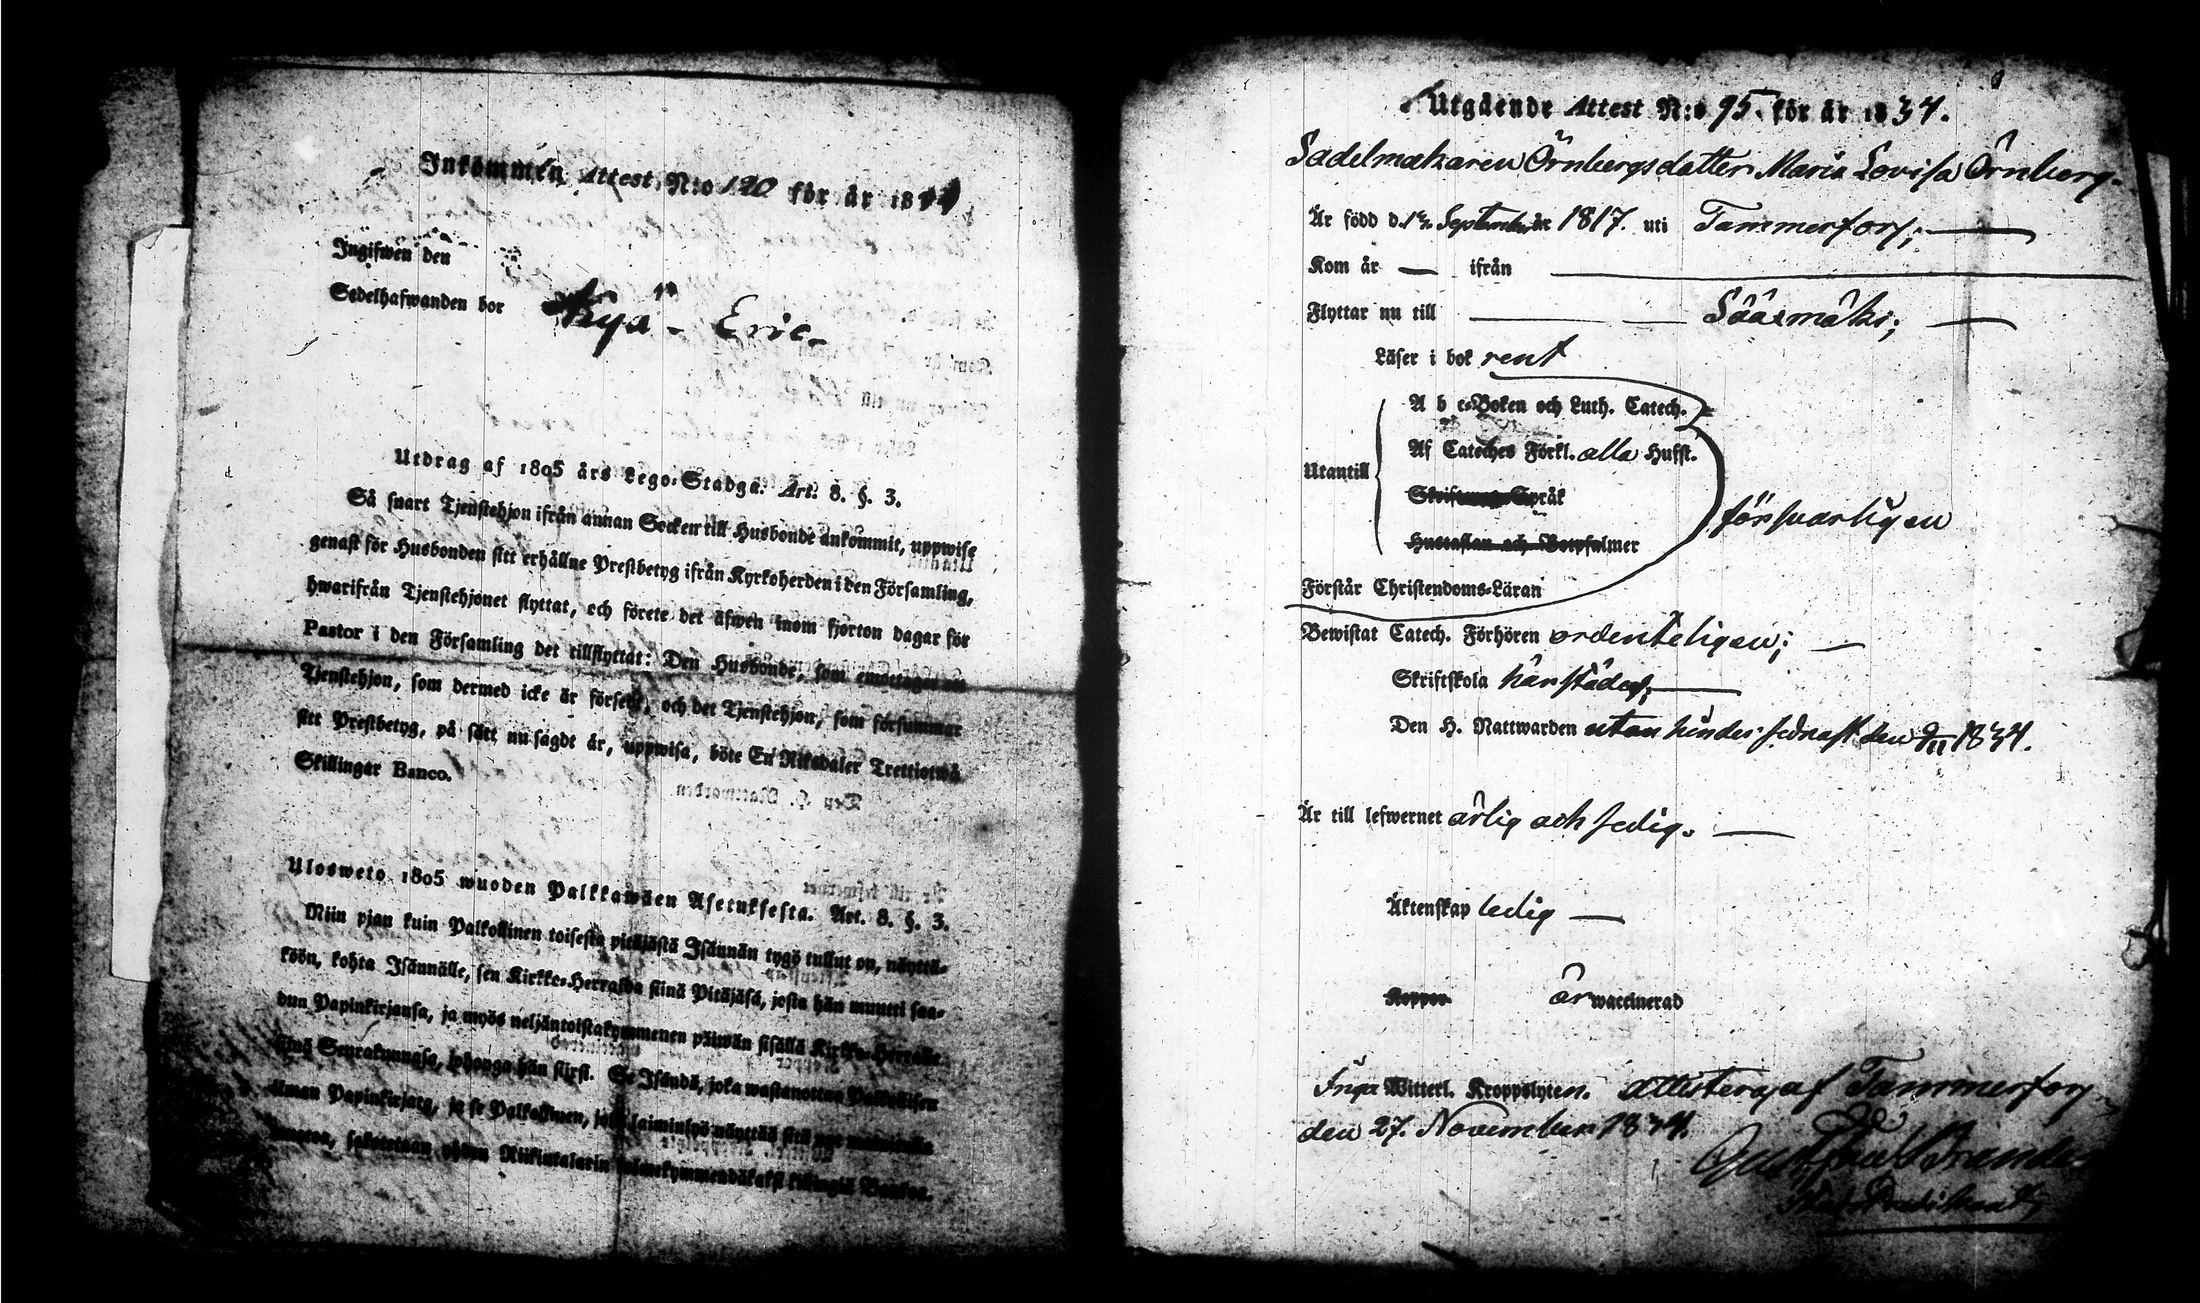 Inkommen Attest N:o 120 för år 18
Ingifwen den
Sedelhafwanden bor Kyä - Eric.
Utdrag af 1805 års Lego-Stadga. Art. 8. §. 3.
Så snart Tjenstehjon ifrån annan Socken till Husbonde ankommit, uppwise
genast för Husbonden sitt erhållne Prestbetyg ifrån Kyrkoherden i den Församling,
hwarifrån Tjenstehjonet flyttat, och förete det äfwen inom fjorton dagar för
Pastor i den Församling det tillflyttat: Den Husbonde, som emottager ett
Tjenstehjon, som dermed icke är försedt, och det Tjenstehjon, som försummar
sitt Prestbetyg, på sätt nu sagdt är, uppwisa, böte En Riksdaler Trettiotwå
Skillingar Banco.
Ulosweto 1805 wuoden Palkkawäen Asetuksesta. Art. 8. §. 3.
Niin pian kuin Palkollinen toisesta pitäjästä Isännän tygö tullut on, näyttä-
köön, kohta Isännälle, sen Kirkko-Herralda siinä Pitäjäsä, josta hän muutti saa-
dun Papinkirjansa, ja myös neljäntoistakymmenen päiwän sisällä Kirkko-Herralle
siinä Seurakunnasa, johonga hän siirsi. Se Isändä, joka wastanottaa Palkollisen
ilman Papinkirjata, ja se Palkollinen, joka laiminlyö näyttää sitä
sakotetaan yhden Riikintalarin kolmekymmendäkaksi killingiä Bankoa.
Utgående Attest N:o 95. för år 1834.
Sadelmakaren Örnbergs dotter Maria Lovisa Örnberg.
Är född d. September 1817. uti Tammerfors;
Kom år — ifrån
Flyttar nu till Sääsmäki;
Läser i bok rent
A b c-Boken och Luth. Catech.
Af Cateches Förkl. alla Hufst.
Utantill
Skriftenes Språk
Hustaflan och Botpsalmer
försvarligen
Förstår Christendoms-Läran
Bewistat Catech. Förhören ordenteligen;
Skriftskola härstädes;
Den H. Nattwarden utan hinder sednast den 9/11 1834.
Är till lefwernet ärlig och sedig.
Äktenskap ledig
Koppor är waccinerad
Inga Witterl. Kroppslyten. attesteras af Tammerfors
den 27. November 1834.